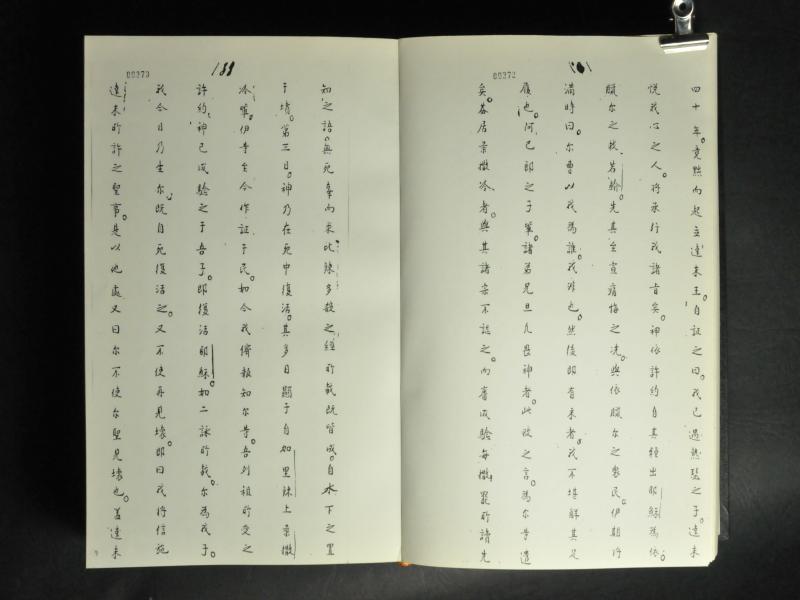 00272
四十年。竟黜而起立達未王。自証之曰。我已遇熱瑟之子。達未
悦我心之人。将承行我諸旨矣。神依許約自其種出耶穌為依。
臘尔之救。若翰先其至宣痛悔之洗。與依臘尔之衆民。伊期将
滿時曰。尔曹以我為誰。我非也。然後即有来者。我不堪解其足
履也。阿巴郎之子輩。諸弟兄且凡畏神者。此救之言。為尔等遣
矣。盖居柔撒冷者。與其諸宗不認之。而審成驗每撒罷所誦先
00273
知之語。無死辜而求比辣多殺之經所載既皆成。自木下之置
于墳。第三日。神乃在死中復活。其多日顯于自加里辣上柔撒
冷輩。伊等至今作証于民。如今我儕報知尔等。吾列祖所受之
許約。神已成驗之于吾子。即復活耶穌。如二詠所載。尔為我子。
我今日乃生尔。既自死復活之。又不使再見壞。即曰我将信施
達未所許之聖事。是以他處又曰尔不使尔聖見壞也。盖達未